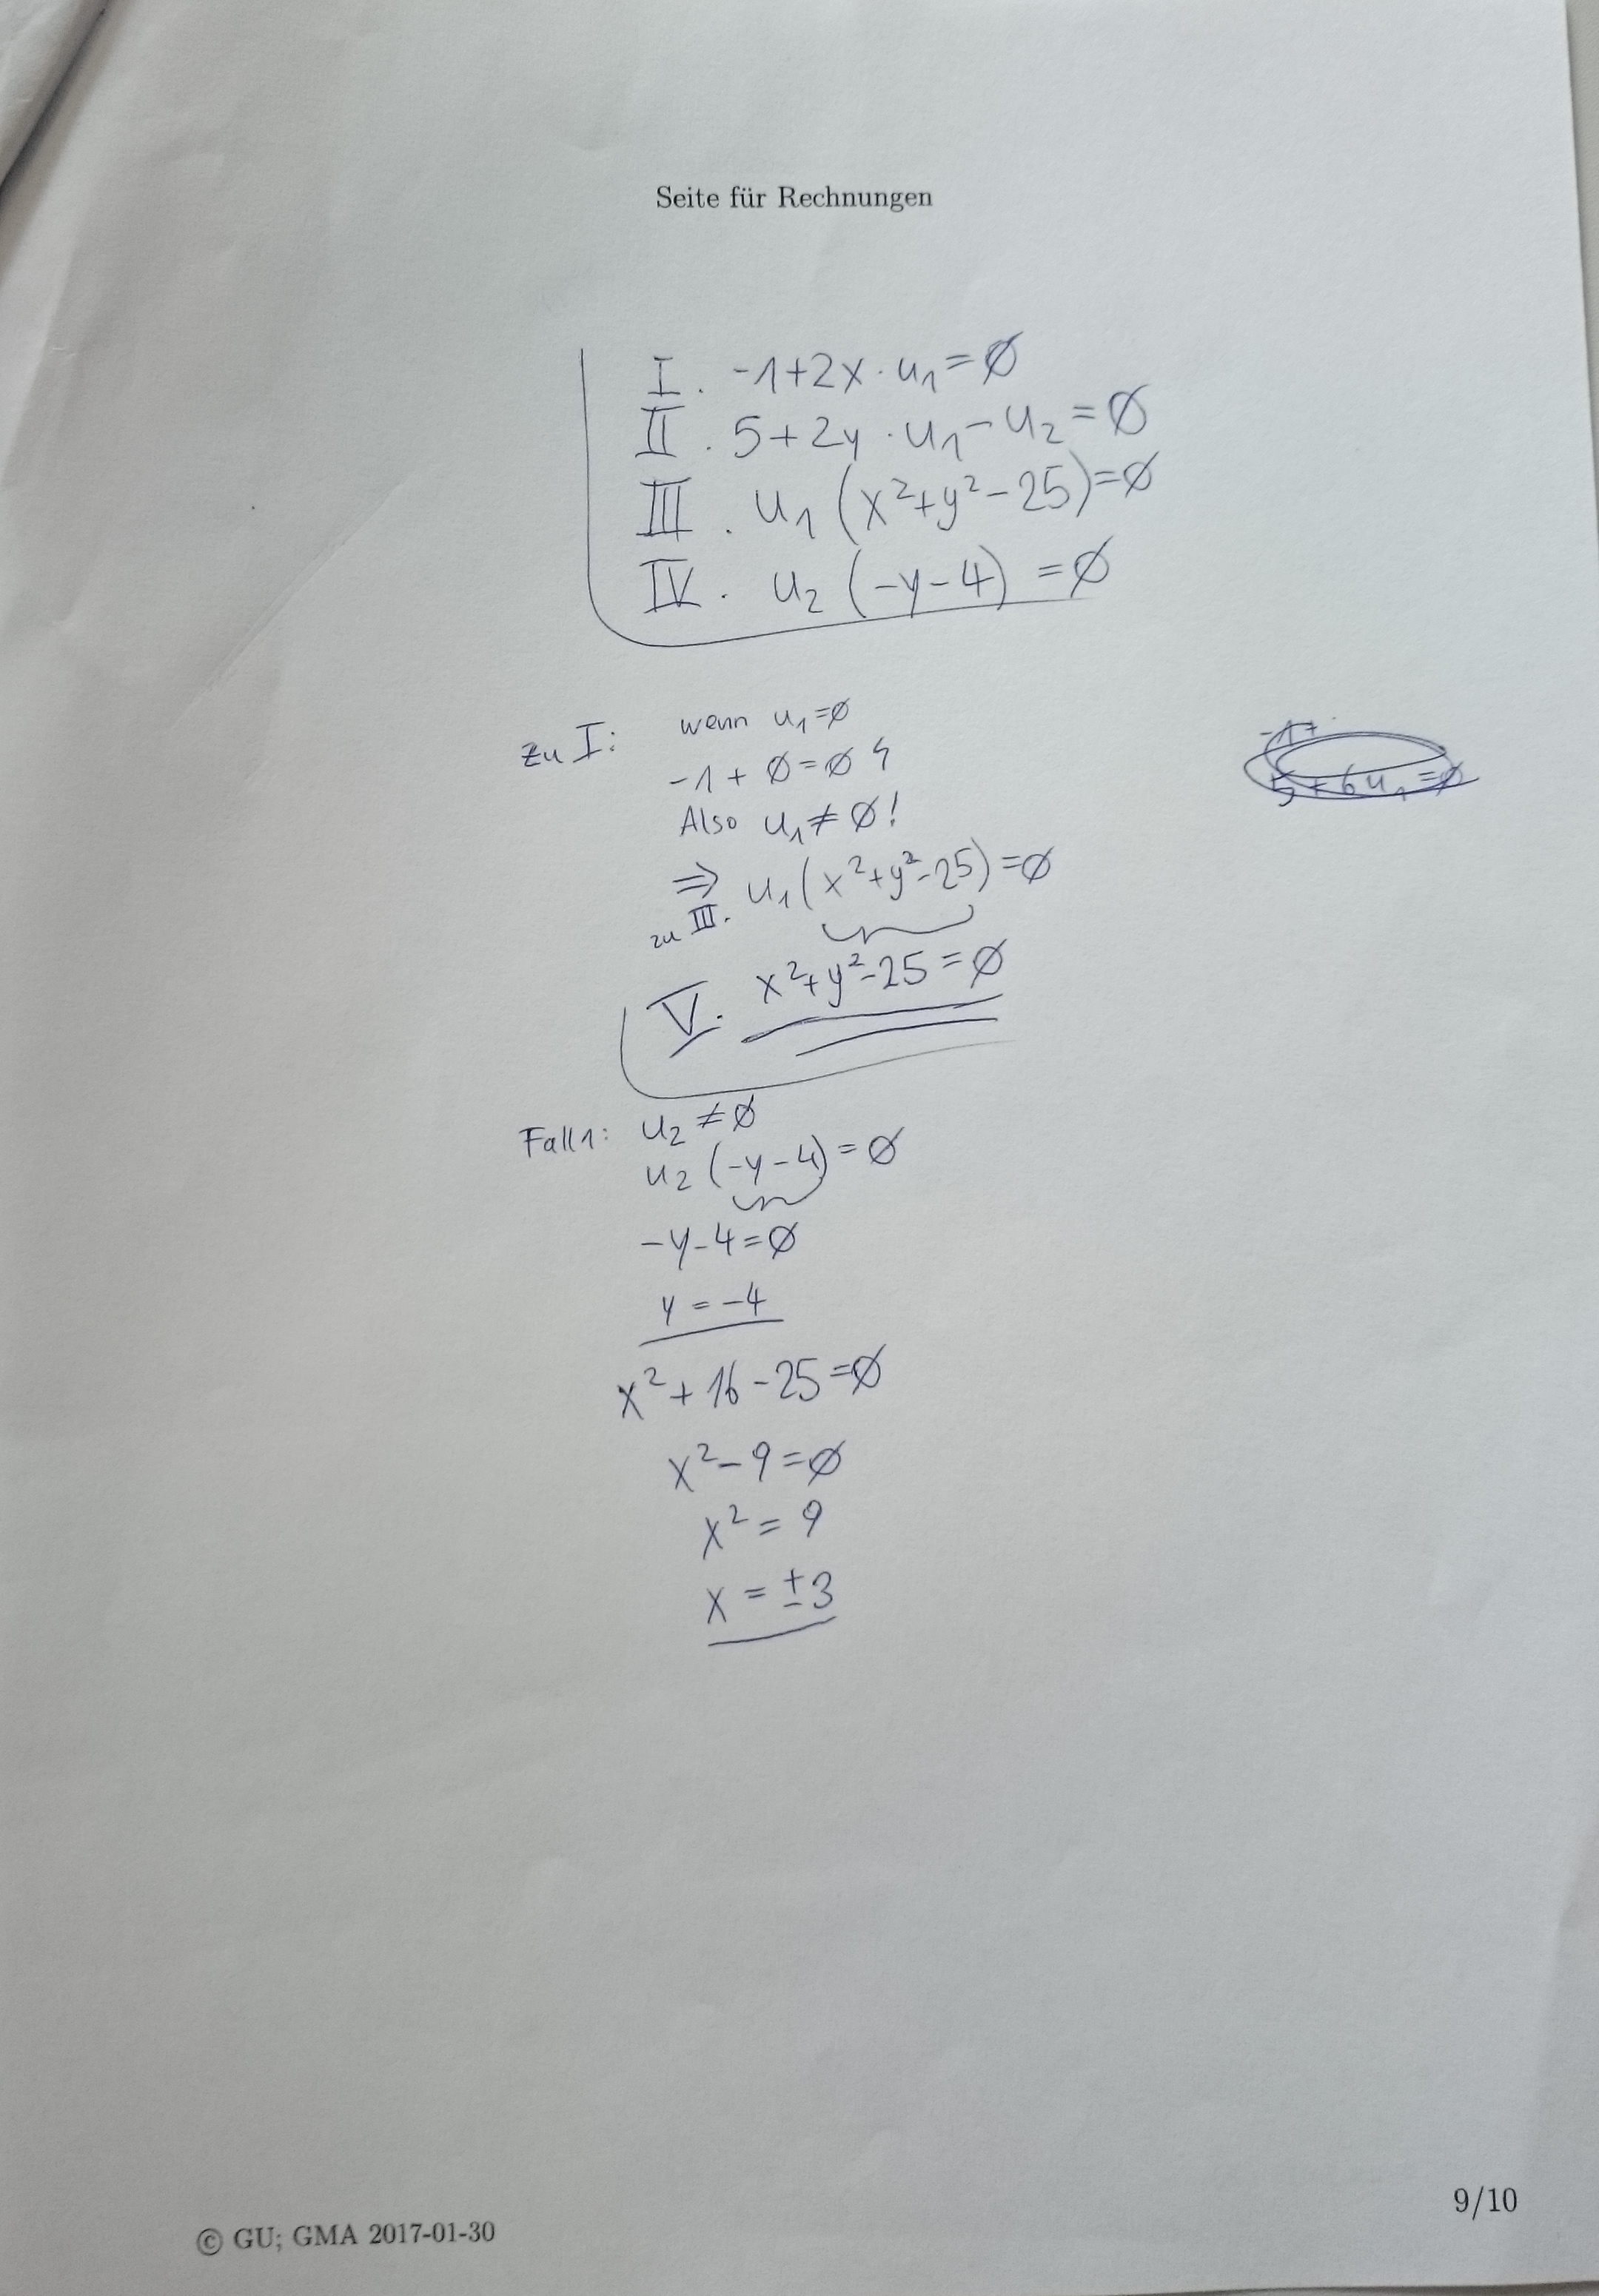 Seite für Rechnungen
I. -1+2x·u₁=∅
II. 5+2y·u₁-u₂=∅
III. u₁(x²+y²-25)=∅
IV. u₂(-y-4)=∅
zu I: wenn u₁=∅
-1+∅=∅ ↯
Also u₁≠∅!
⇒ u₁(x²+y²-25)=∅
zu III.
V. x²+y²-25=∅
-1+
5+6u₁=∅
Fall 1: u₂≠∅
u₂(-y-4)=∅
-y-4=∅
y=-4
x²+16-25=∅
x²-9=∅
x²=9
x=±3
9/10
© GU; GMA 2017-01-30